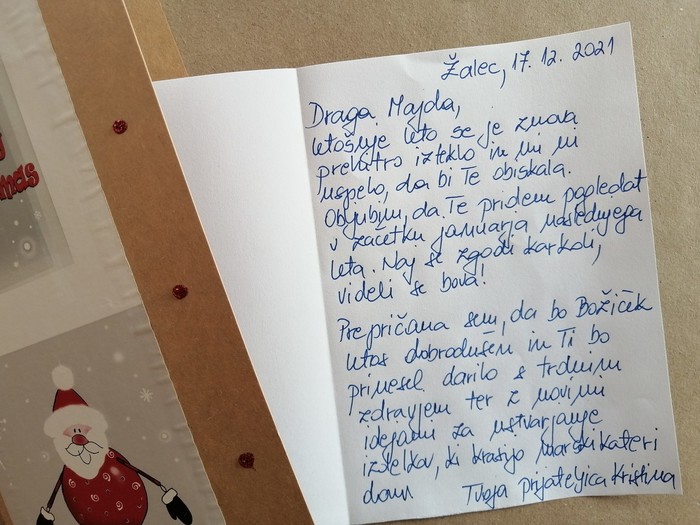 mas
Žalec, 17. 12. 2021
Draga Majda,
letošnje leto se je znova
prehitro izteklo in mi ni
uspelo, da bi Te obiskala.
Obljubim, da Te pridem pogledat
v začetku januarja naslednjega
leta. Naj se zgodi karkoli,
videli se bova!
Prepričana sem, da bo Božiček
letos dobrodušen in Ti bo
prinesel darilo s trdnim
zdravjem ter z novimi
idejami za ustvarjanje
izdelkov, ki krasijo marsikateri
dom. Tvoja prijateljica Kristina